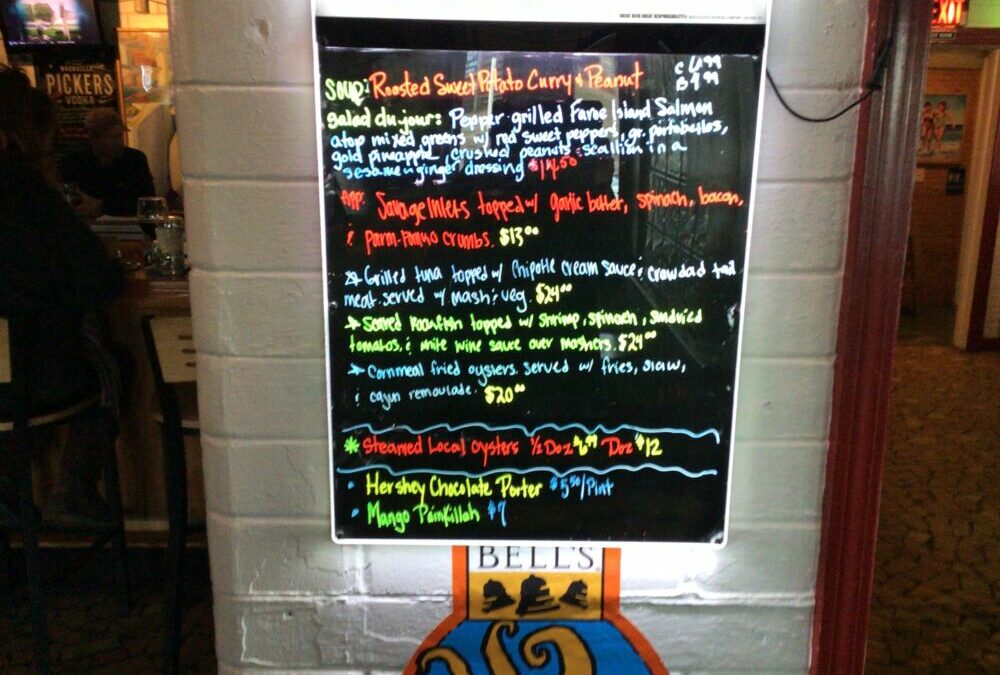 GREAT BEER GREAT RESPONSIBILITY
EXIT
NASHVILLE
PICKERS
VODKA
Soup: Roasted Sweet Potato Curry & Peanut
C 6.99
B 4.99
Salad du jour: Pepper grilled Faroe Island Salmon
atop mixed greens w/ red sweet peppers, gr. portabellos,
gold pineapple, crushed peanuts & scallion in a
sesame ginger dressing $14.50
App: topped w/ garlic butter, spinach, bacon,
& parm-panko crumbs. $13.00
Grilled tuna topped w/ chipotle cream sauce & crawdad tail
meat. served w/ mash & veg. $24.00
topped w/ shrimp, spinach, sundried
tomatos, & white wine sauce over mashers. $24.00
Cornmeal fried oysters. served w/ fries, slaw,
& cajun remoulade. $20.00
Steamed Local Oysters 1/2 Doz $6.99 Doz $12
Hershey Chocolate Porter $5.50/Pint
Mango Painkillah $7
BELL'S